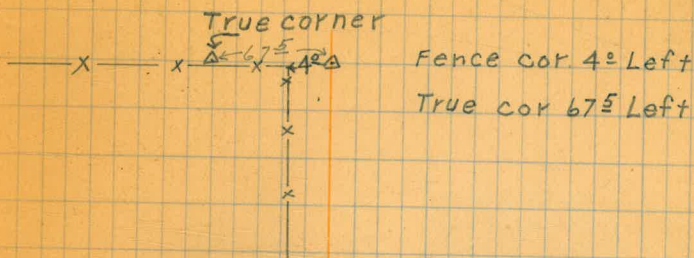 True corner
67⁵
4⁰
Fence cor. 4⁰ Left
True cor 67⁵ Left